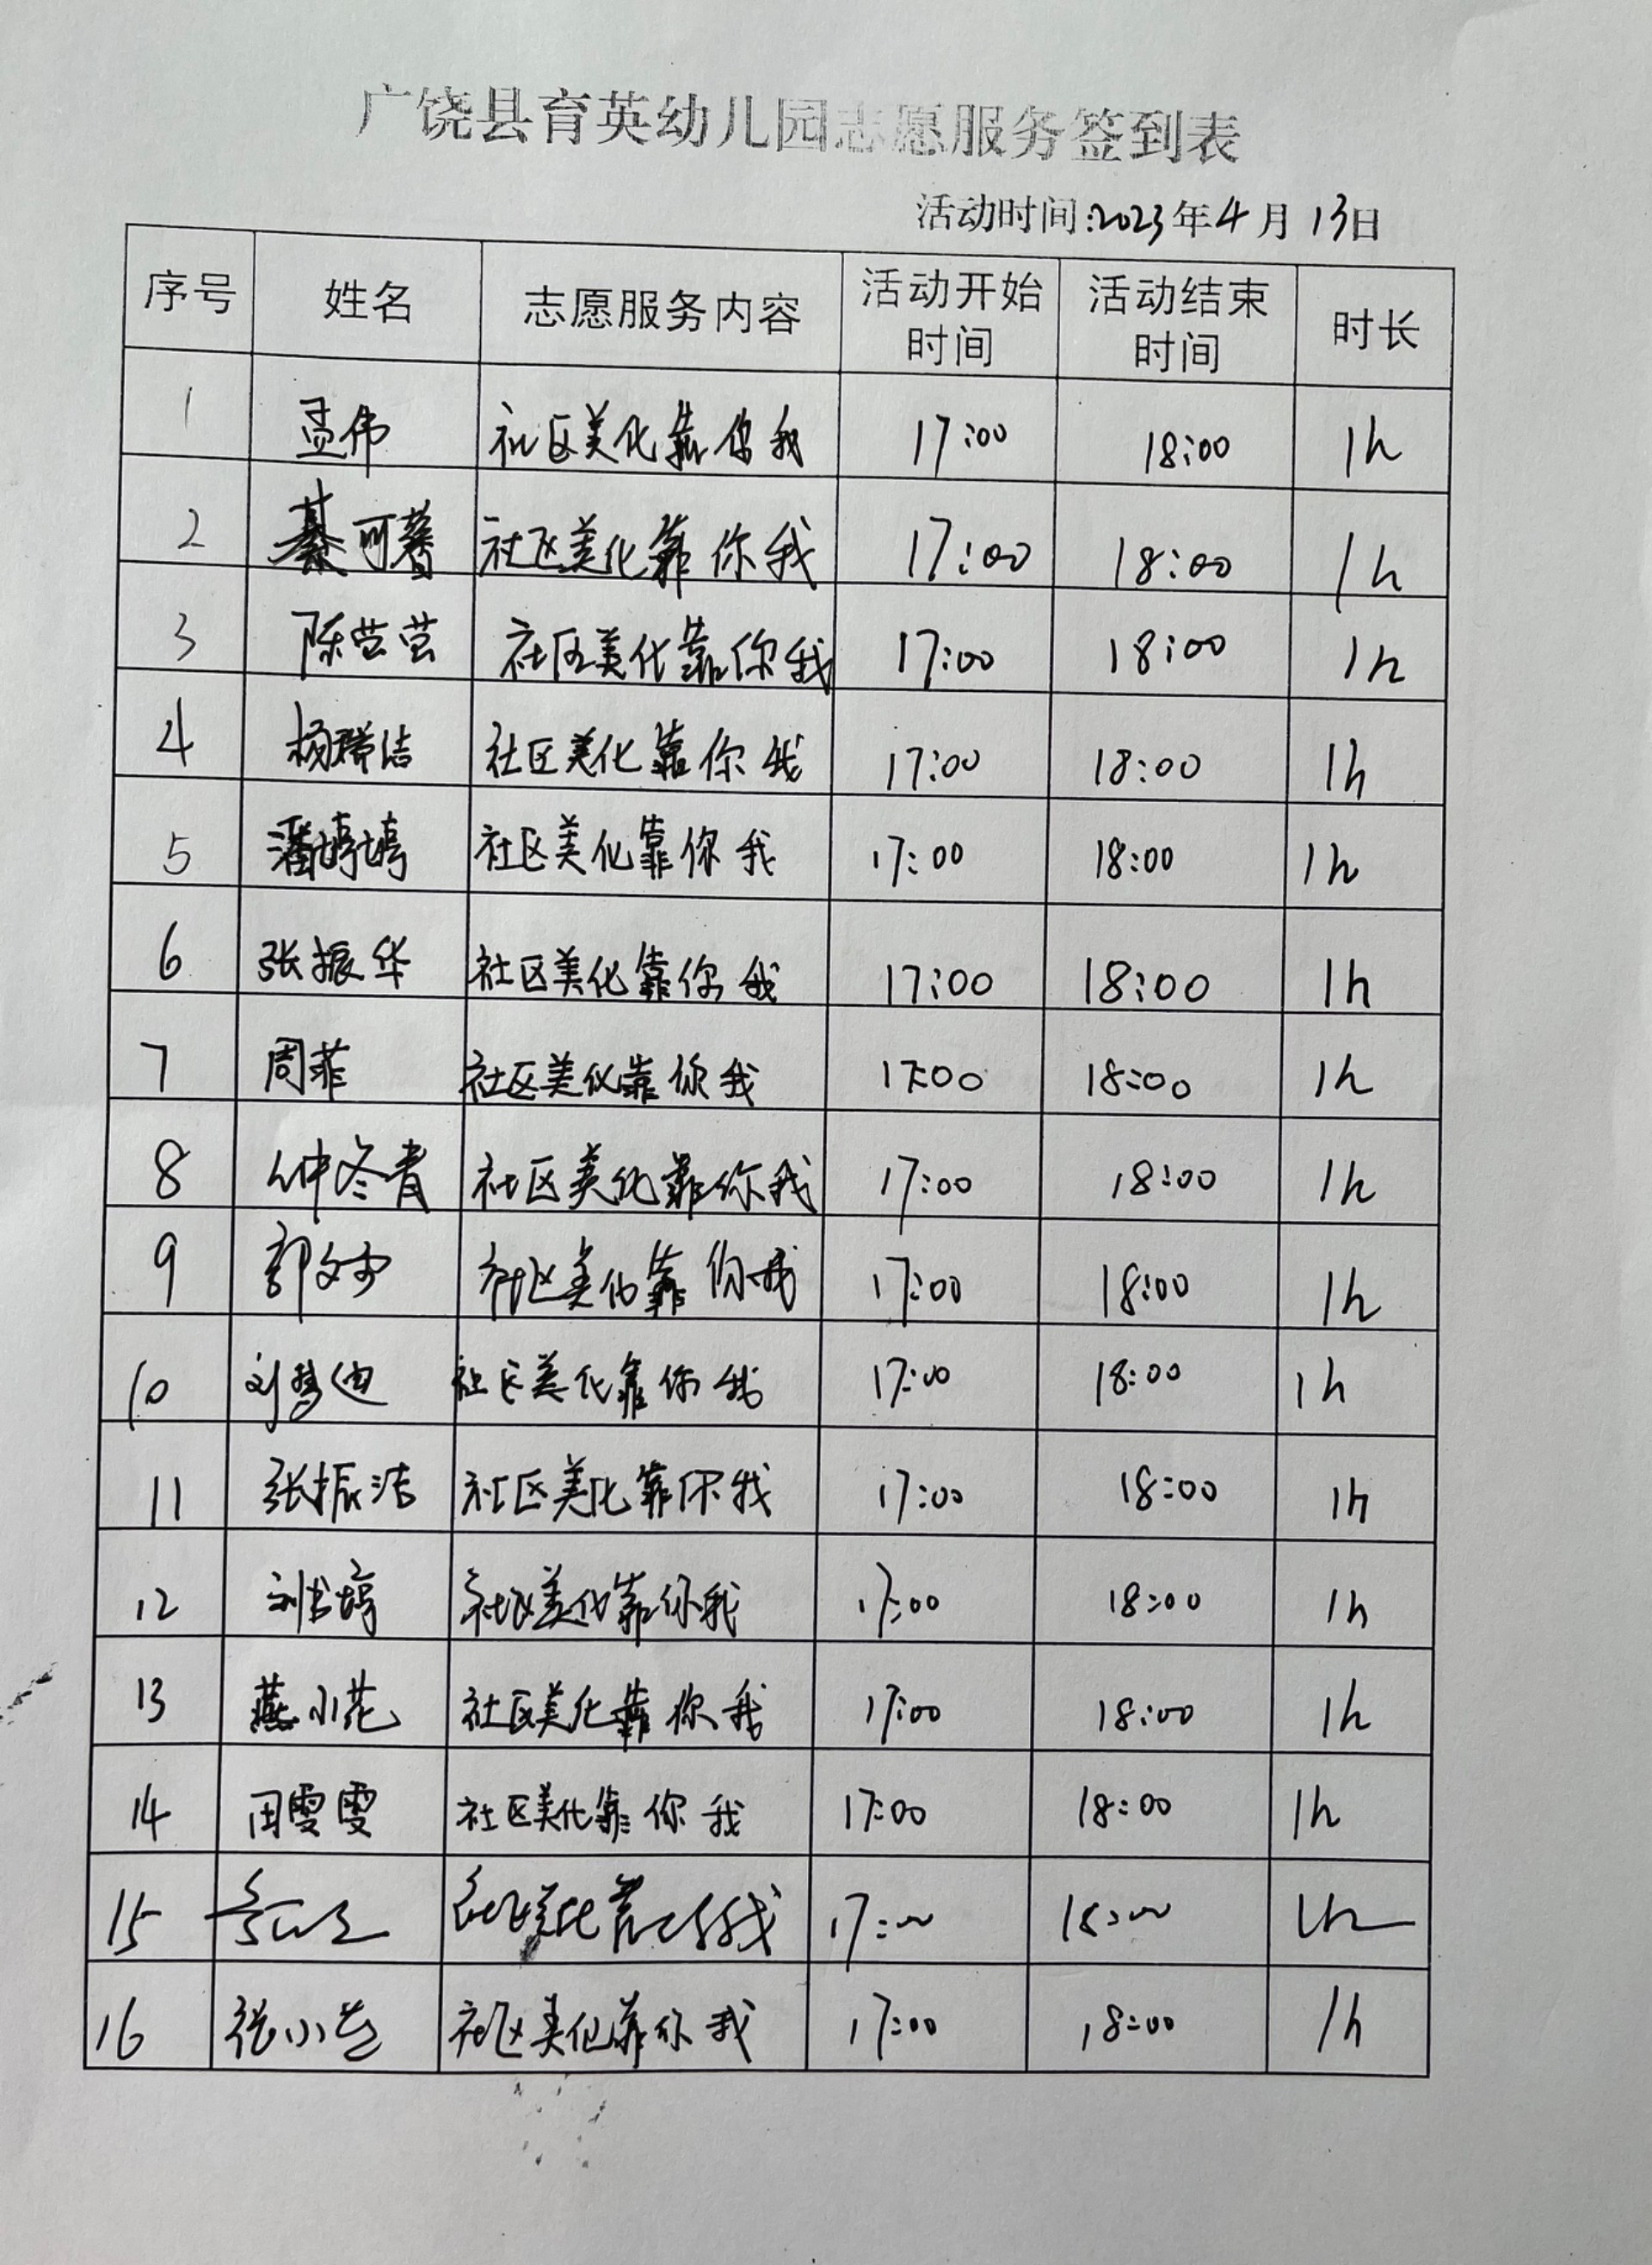 广饶县育英幼儿园志愿服务签到表
活动时间:2023年4月13日
序号 姓名 志愿服务内容 活动开始时间 活动结束时间 时长
1 孟伟 社区美化靠你我 17:00 18:00 1h
2 綦可馨 社区美化靠你我 17:00 18:00 1h
3 陈芸芸 社区美化靠你我 17:00 18:00 1h
4 杨瑞洁 社区美化靠你我 17:00 18:00 1h
5 潘婷婷 社区美化靠你我 17:00 18:00 1h
6 张振华 社区美化靠你我 17:00 18:00 1h
7 周菲 社区美化靠你我 17:00 18:00 1h
8 钟冬青 社区美化靠你我 17:00 18:00 1h
9 郭文 社区美化靠你我 17:00 18:00 1h
10 刘梦迪 社区美化靠你我 17:00 18:00 1h
11 张振洁 社区美化靠你我 17:00 18:00 1h
12 刘书婷 社区美化靠你我 17:00 18:00 1h
13 燕小花 社区美化靠你我 17:00 18:00 1h
14 田雯雯 社区美化靠你我 17:00 18:00 1h
15 社区美化靠你我 17:00 18:00 1h
16 张小芝 社区美化靠你我 17:00 18:00 1h